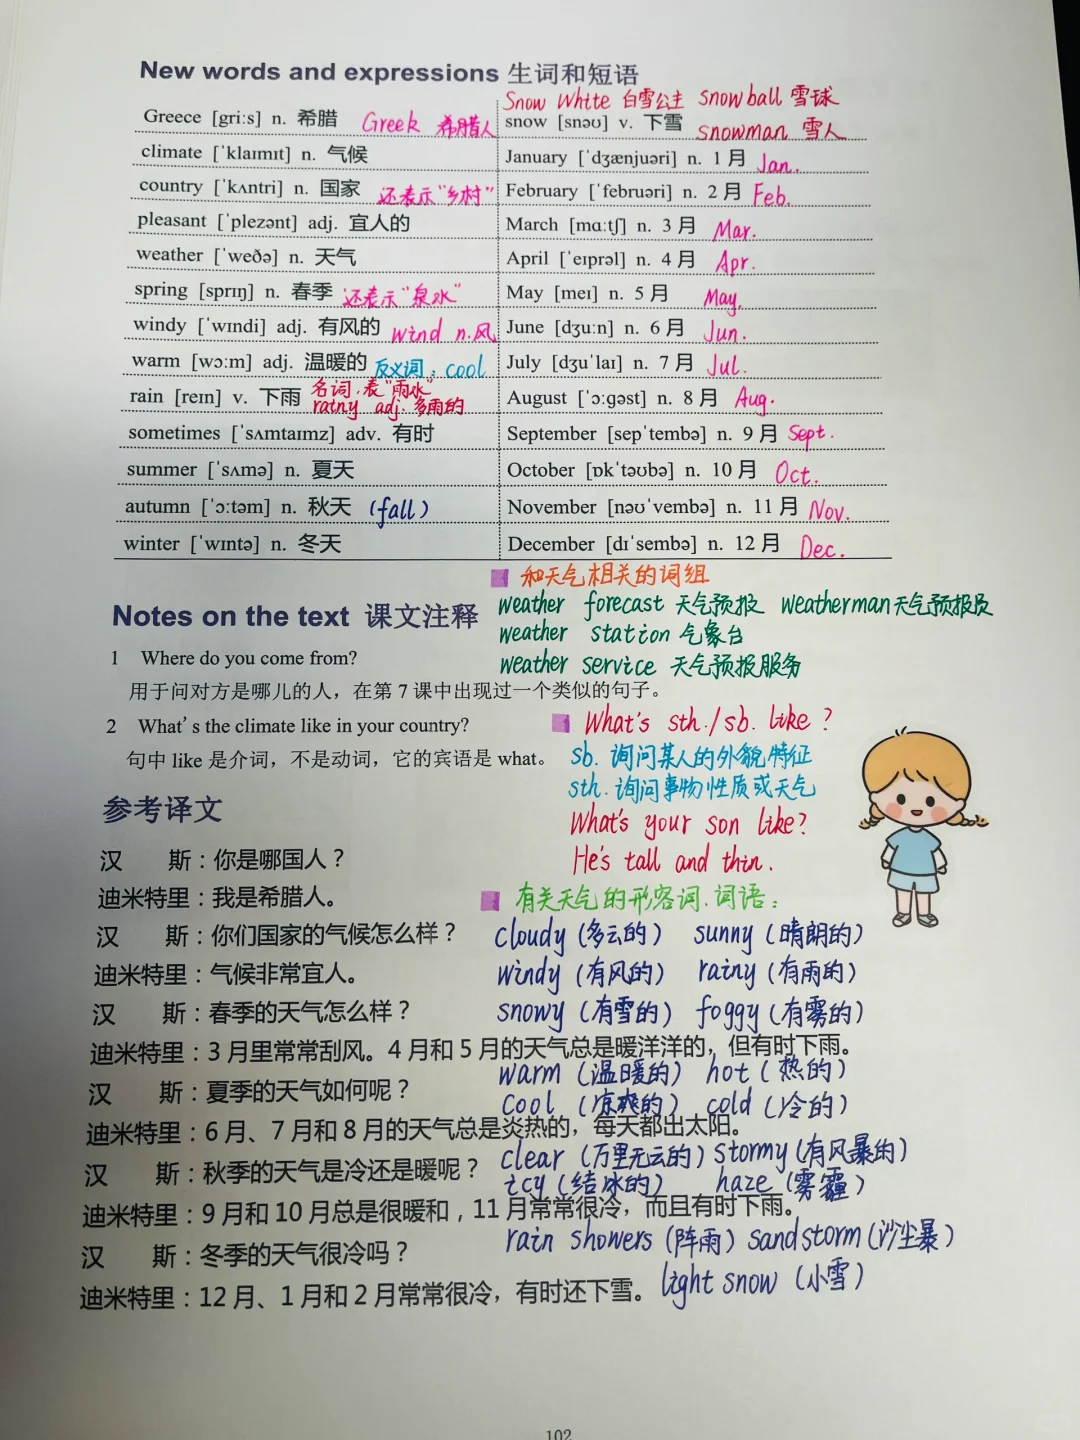 New words and expressions 生词和短语
Snow White 白雪公主 snowball 雪球
Greece [gri:s] n. 希腊 Greek 希腊人
snow [snəʊ] v. 下雪 snowman 雪人
climate [ˈklaɪmɪt] n. 气候
January [ˈdʒænjuəri] n. 1 月 Jan.
country [ˈkʌntri] n. 国家 还表示“乡村”
February [ˈfebruəri] n. 2 月 Feb.
pleasant [ˈplezənt] adj. 宜人的
March [mɑ:tʃ] n. 3 月 Mar.
weather [ˈweðə] n. 天气
April [ˈeɪprəl] n. 4 月 Apr.
spring [sprɪŋ] n. 春季 还表示“泉水”
May [meɪ] n. 5 月 May.
windy [ˈwɪndi] adj. 有风的 wind n.风
June [dʒu:n] n. 6 月 Jun.
warm [wɔ:m] adj. 温暖的 反义词：cool
July [dʒuˈlaɪ] n. 7 月 Jul.
rain [reɪn] v. 下雨 名词.表“雨水”
rainy adj. 多雨的
August [ˈɔ:gəst] n. 8 月 Aug.
sometimes [ˈsʌmtaɪmz] adv. 有时
September [sepˈtembə] n. 9 月 Sept.
summer [ˈsʌmə] n. 夏天
October [ɒkˈtəʊbə] n. 10 月 Oct.
autumn [ˈɔ:təm] n. 秋天 (fall)
November [nəʊˈvembə] n. 11 月 Nov.
winter [ˈwɪntə] n. 冬天
December [dɪˈsembə] n. 12 月 Dec.
和天气相关的词组
weather forecast 天气预报 weatherman天气预报员
weather station 气象台
weather service 天气预报服务
Notes on the text 课文注释
1 Where do you come from?
用于问对方是哪儿的人，在第 7 课中出现过一个类似的句子。
2 What's the climate like in your country?
句中 like 是介词，不是动词，它的宾语是 what。
What's sth./sb. like ?
sb. 询问某人的外貌特征
sth. 询问事物性质或天气
What's your son like?
He's tall and thin.
参考译文
汉 斯：你是哪国人？
迪米特里：我是希腊人。
汉 斯：你们国家的气候怎么样？
迪米特里：气候非常宜人。
汉 斯：春季的天气怎么样？
迪米特里：3 月里常常刮风。4 月和 5 月的天气总是暖洋洋的，但有时下雨。
汉 斯：夏季的天气如何呢？
迪米特里：6 月、7 月和 8 月的天气总是炎热的，每天都出太阳。
汉 斯：秋季的天气是冷还是暖呢？
迪米特里：9 月和 10 月总是很暖和，11 月常常很冷，而且有时下雨。
汉 斯：冬季的天气很冷吗？
迪米特里：12 月、1 月和 2 月常常很冷，有时还下雪。
有关天气的形容词.词语：
cloudy (多云的) sunny (晴朗的)
windy (有风的) rainy (有雨的)
snowy (有雪的) foggy (有雾的)
warm (温暖的) hot (热的)
cool (凉爽的) cold (冷的)
clear (万里无云的) stormy (有风暴的)
icy (结冰的) haze (雾霾)
rain showers (阵雨) sandstorm (沙尘暴)
light snow (小雪)
102